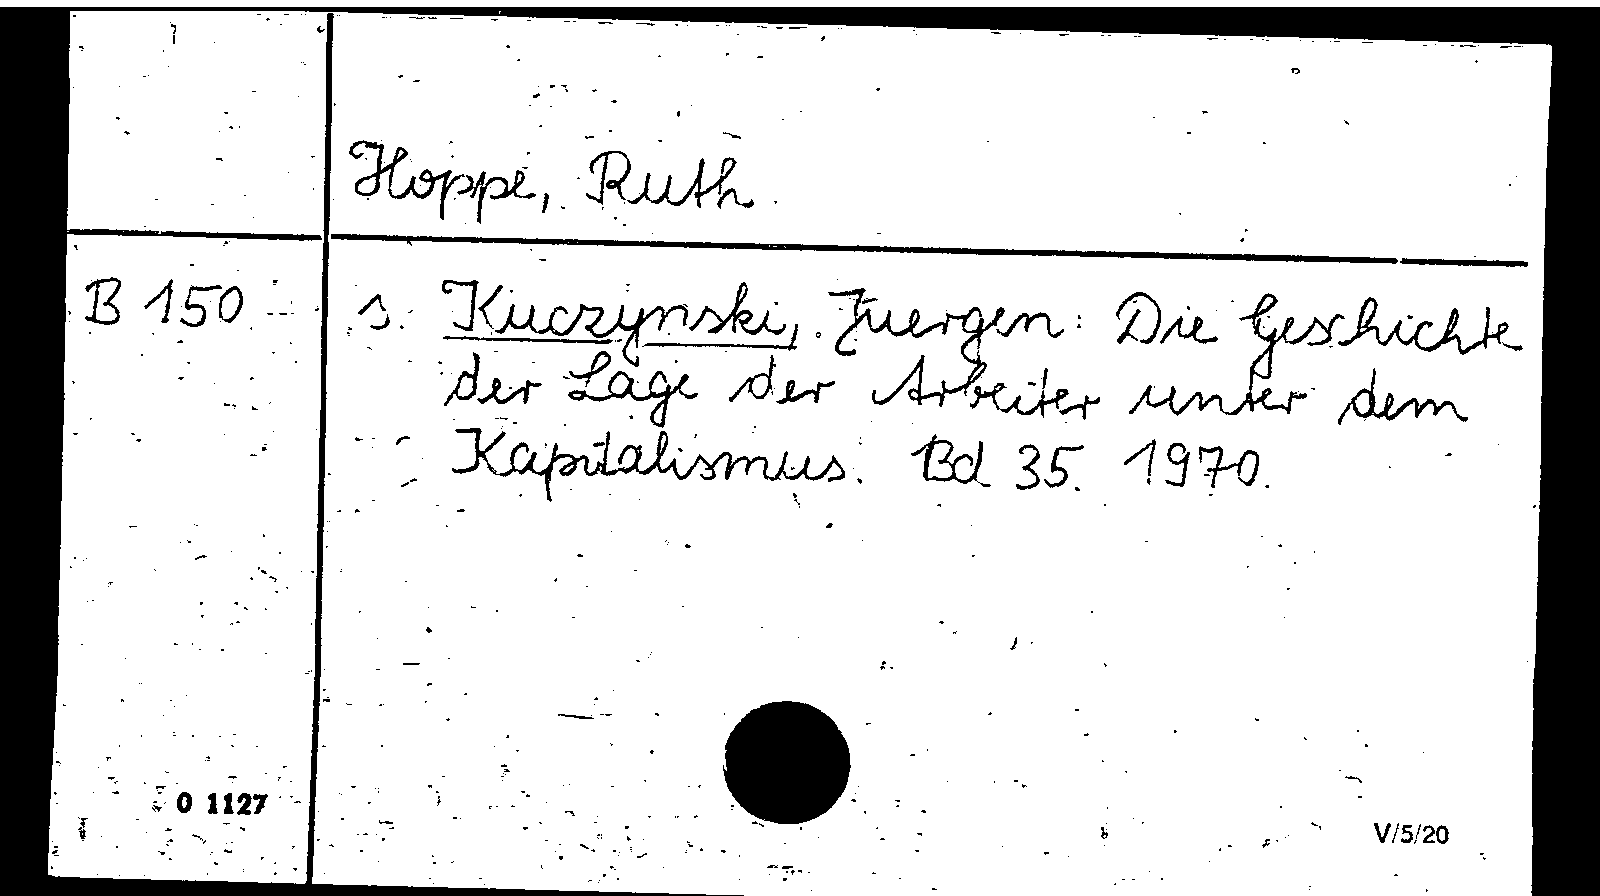 Hoppe, Ruth
B 150 s. Kuczynski, Juergen: Die Geschichte
der Lage der Arbeiter unter dem
Kapitalismus. Bd 35. 1970.
O 1127
V/5/20